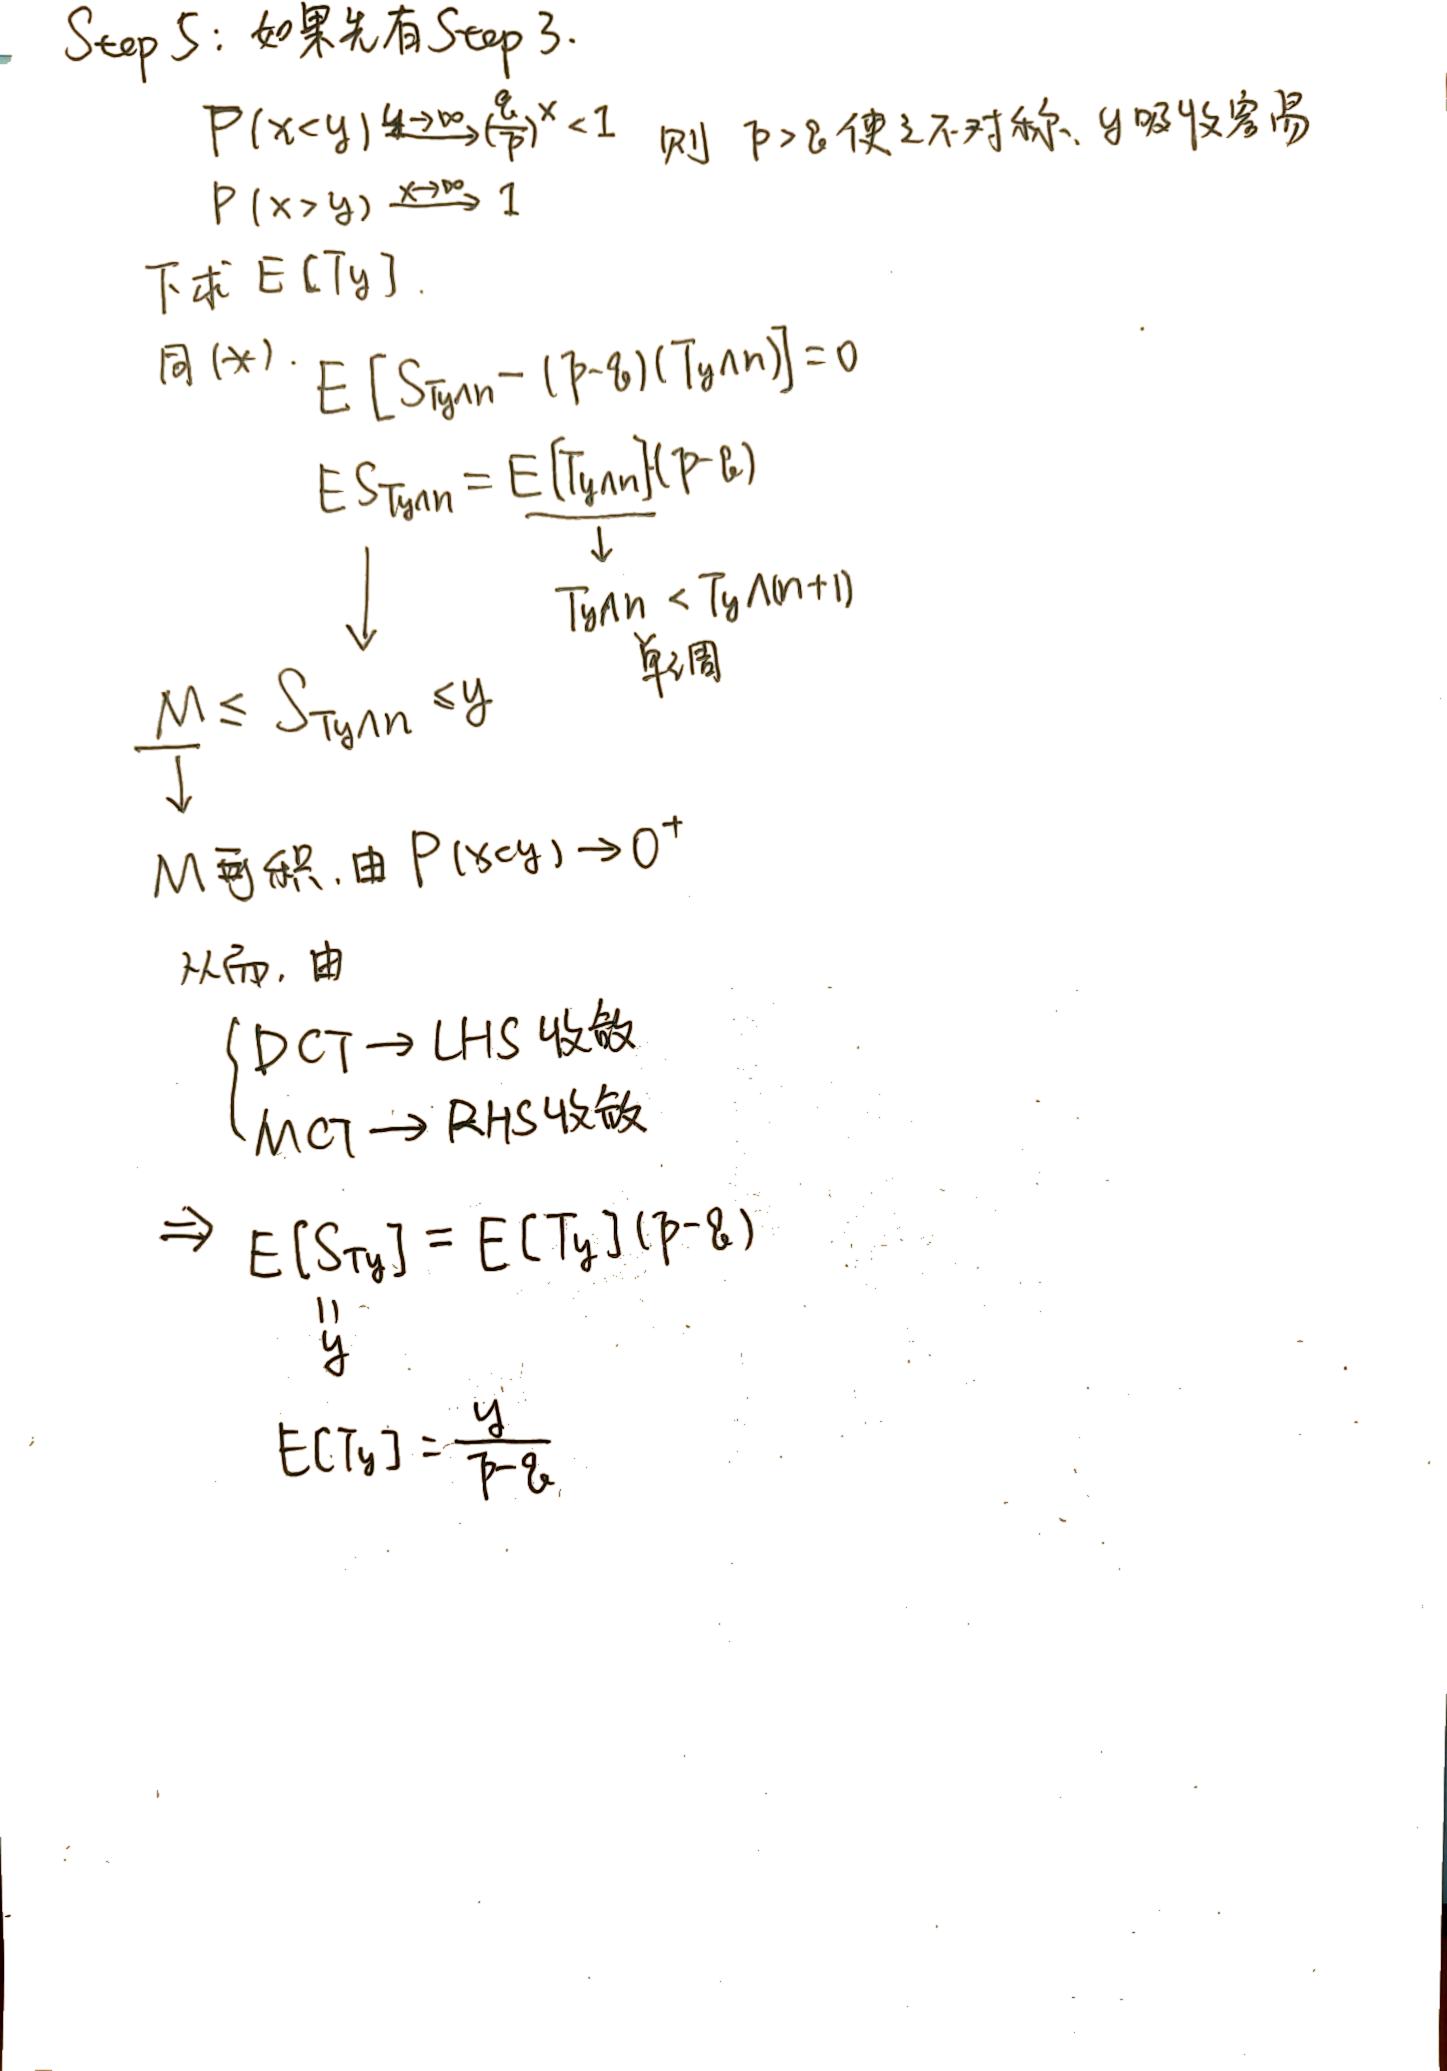 Step 5: 如果先有Step 3.
P(x<y) y→∞→ (q/p)^x < 1 则 p>q 使之不对称、y吸收容易
P(x>y) x→∞→ 1
下求 E[Ty].
同(*). E[S_{Ty∧n} - (p-q)(Ty∧n)] = 0
E S_{Ty∧n} = E[Ty∧n](p-q)
↓ ↓
Ty∧n < Ty∧(n+1)
单调
M ≤ S_{Ty∧n} ≤ y
↓
M可积.由 P(x<y) → 0⁺
从而,由
{ DCT → LHS 收敛
MCT → RHS收敛
⇒ E[S_{Ty}] = E[Ty](p-q)
||
y
E[Ty] = y/(p-q)